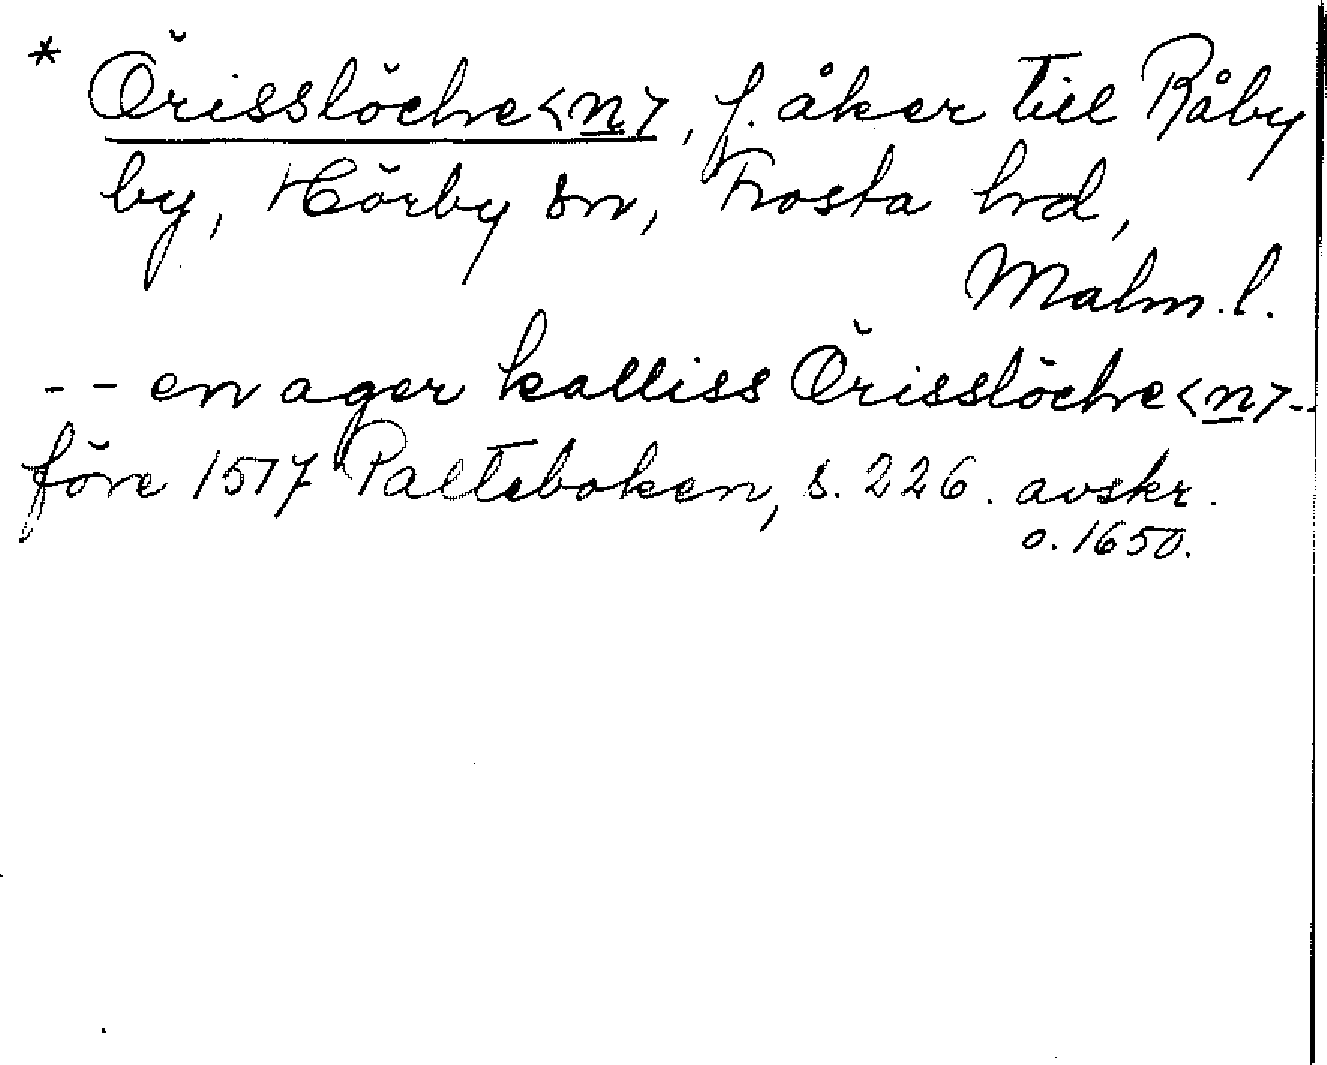 * Örisslöche<n>, f. åker till Råby
by, Hörby sn, Frosta hd,
Malm. l.
-- en ager kalliss Örisslöche<n>--
före 1517 Palteboken, s. 226. avskr.
o. 1650.